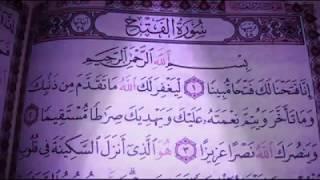 سُورَةُ الْفَتْحِ
بِسْمِ اللَّهِ الرَّحْمَٰنِ الرَّحِيمِ
إِنَّا فَتَحْنَا لَكَ فَتْحًا مُّبِينًا ١ لِّيَغْفِرَ لَكَ اللَّهُ مَا تَقَدَّمَ مِن ذَنۢبِكَ
وَمَا تَأَخَّرَ وَيُتِمَّ نِعْمَتَهُ عَلَيْكَ وَيَهْدِيَكَ صِرَاطًا مُّسْتَقِيمًا ٢
وَيَنصُرَكَ اللَّهُ نَصْرًا عَزِيزًا ٣ هُوَ الَّذِي أَنزَلَ السَّكِينَةَ فِي قُلُوبِ